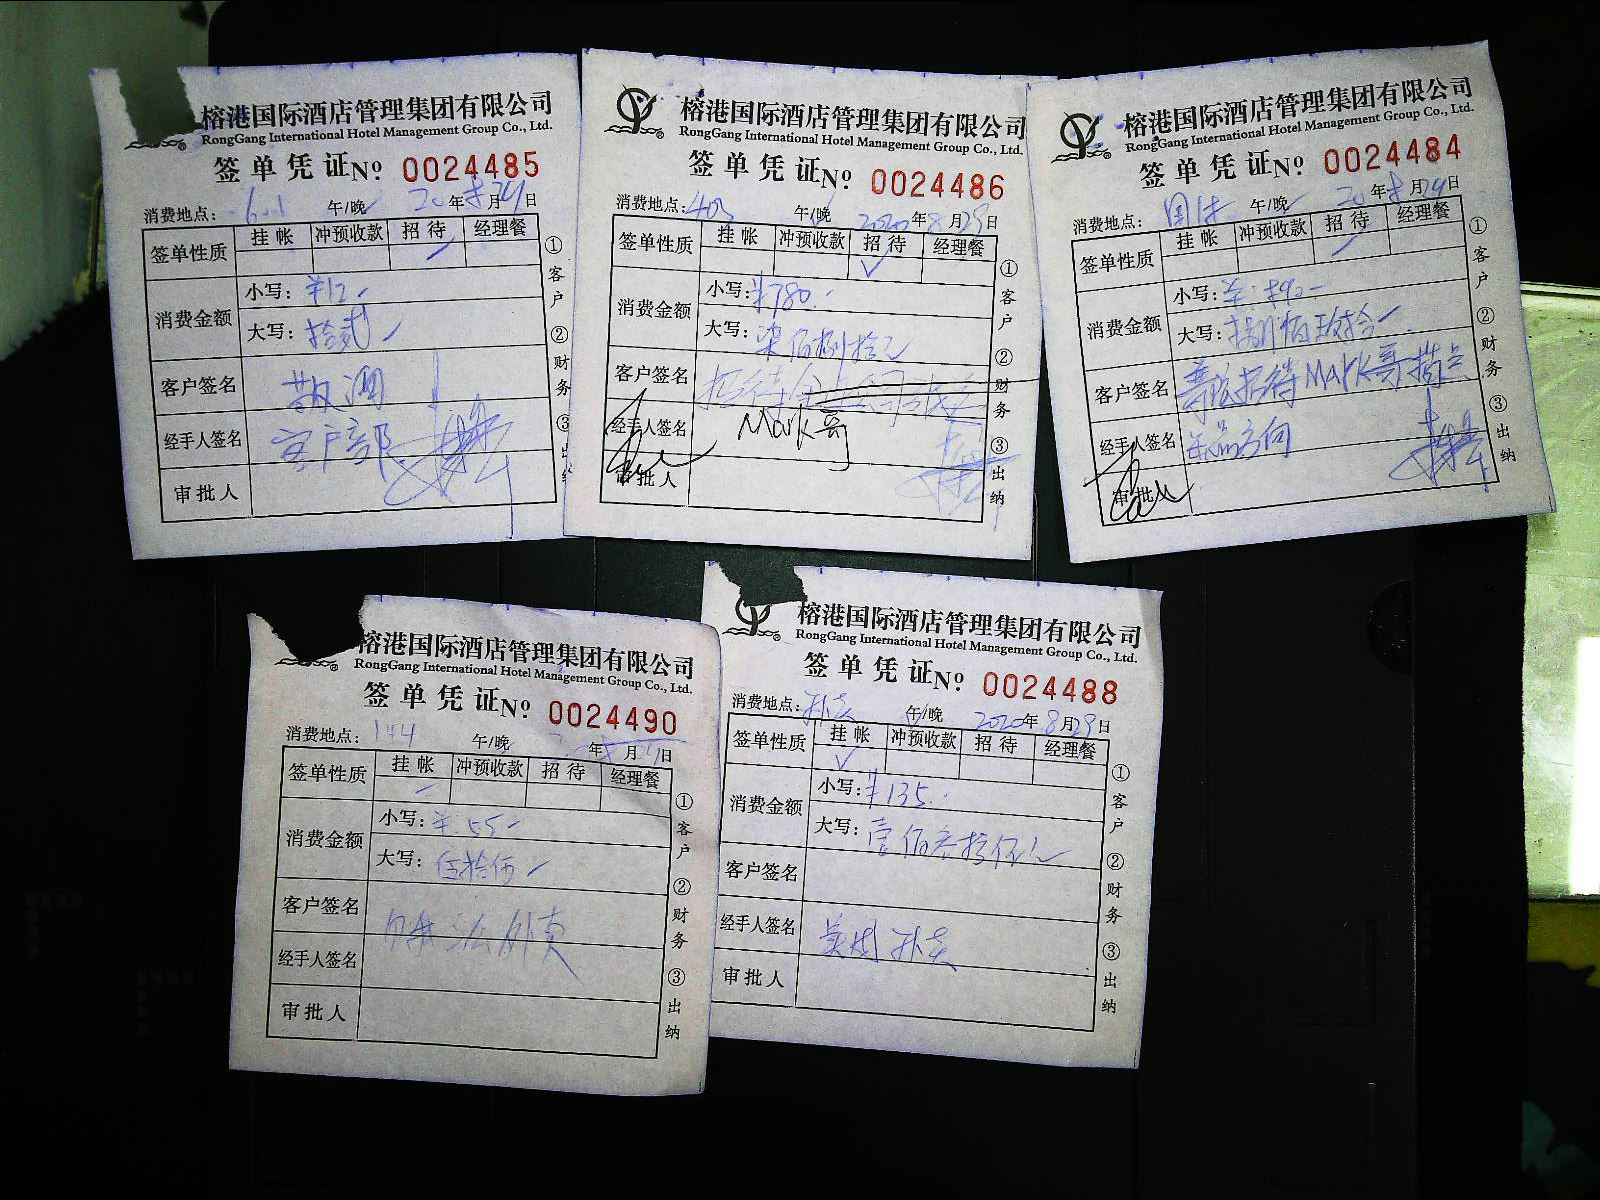 榕港国际酒店管理集团有限公司
RongGang International Hotel Management Group Co., Ltd.
签单凭证№ 0024485
消费地点: 601 午/晚 20年8月29日
签单性质 挂帐 冲预收款 招待 经理餐
消费金额 小写: ¥12
大写: 拾贰
客户签名
经手人签名 客户部
审批人
①客户 ②财务 ③出纳
榕港国际酒店管理集团有限公司
RongGang International Hotel Management Group Co., Ltd.
签单凭证№ 0024486
消费地点: 403 午/晚 2020年8月29日
签单性质 挂帐 冲预收款 招待 经理餐
✓
消费金额 小写: ¥780.-
大写: 柒佰捌拾元
客户签名 招待
经手人签名 Mark哥
审批人
①客户 ②财务 ③出纳
榕港国际酒店管理集团有限公司
RongGang International Hotel Management Group Co., Ltd.
签单凭证№ 0024484
消费地点: 午/晚 20年8月29日
签单性质 挂帐 冲预收款 招待 经理餐
消费金额 小写:
大写:
客户签名 招待Mark哥
经手人签名
审批人
①客户 ②财务 ③出纳
榕港国际酒店管理集团有限公司
RongGang International Hotel Management Group Co., Ltd.
签单凭证№ 0024490
消费地点: 144 午/晚 年 月 日
签单性质 挂帐 冲预收款 招待 经理餐
消费金额 小写: ¥55-
大写: 伍拾伍
客户签名 外卖
经手人签名
审批人
①客户 ②财务 ③出纳
榕港国际酒店管理集团有限公司
RongGang International Hotel Management Group Co., Ltd.
签单凭证№ 0024488
消费地点: 外卖 午/晚 2020年8月29日
签单性质 挂帐 冲预收款 招待 经理餐
✓
消费金额 小写: ¥135.-
大写: 壹佰叁拾伍元
客户签名
经手人签名 外卖
审批人
①客户 ②财务 ③出纳